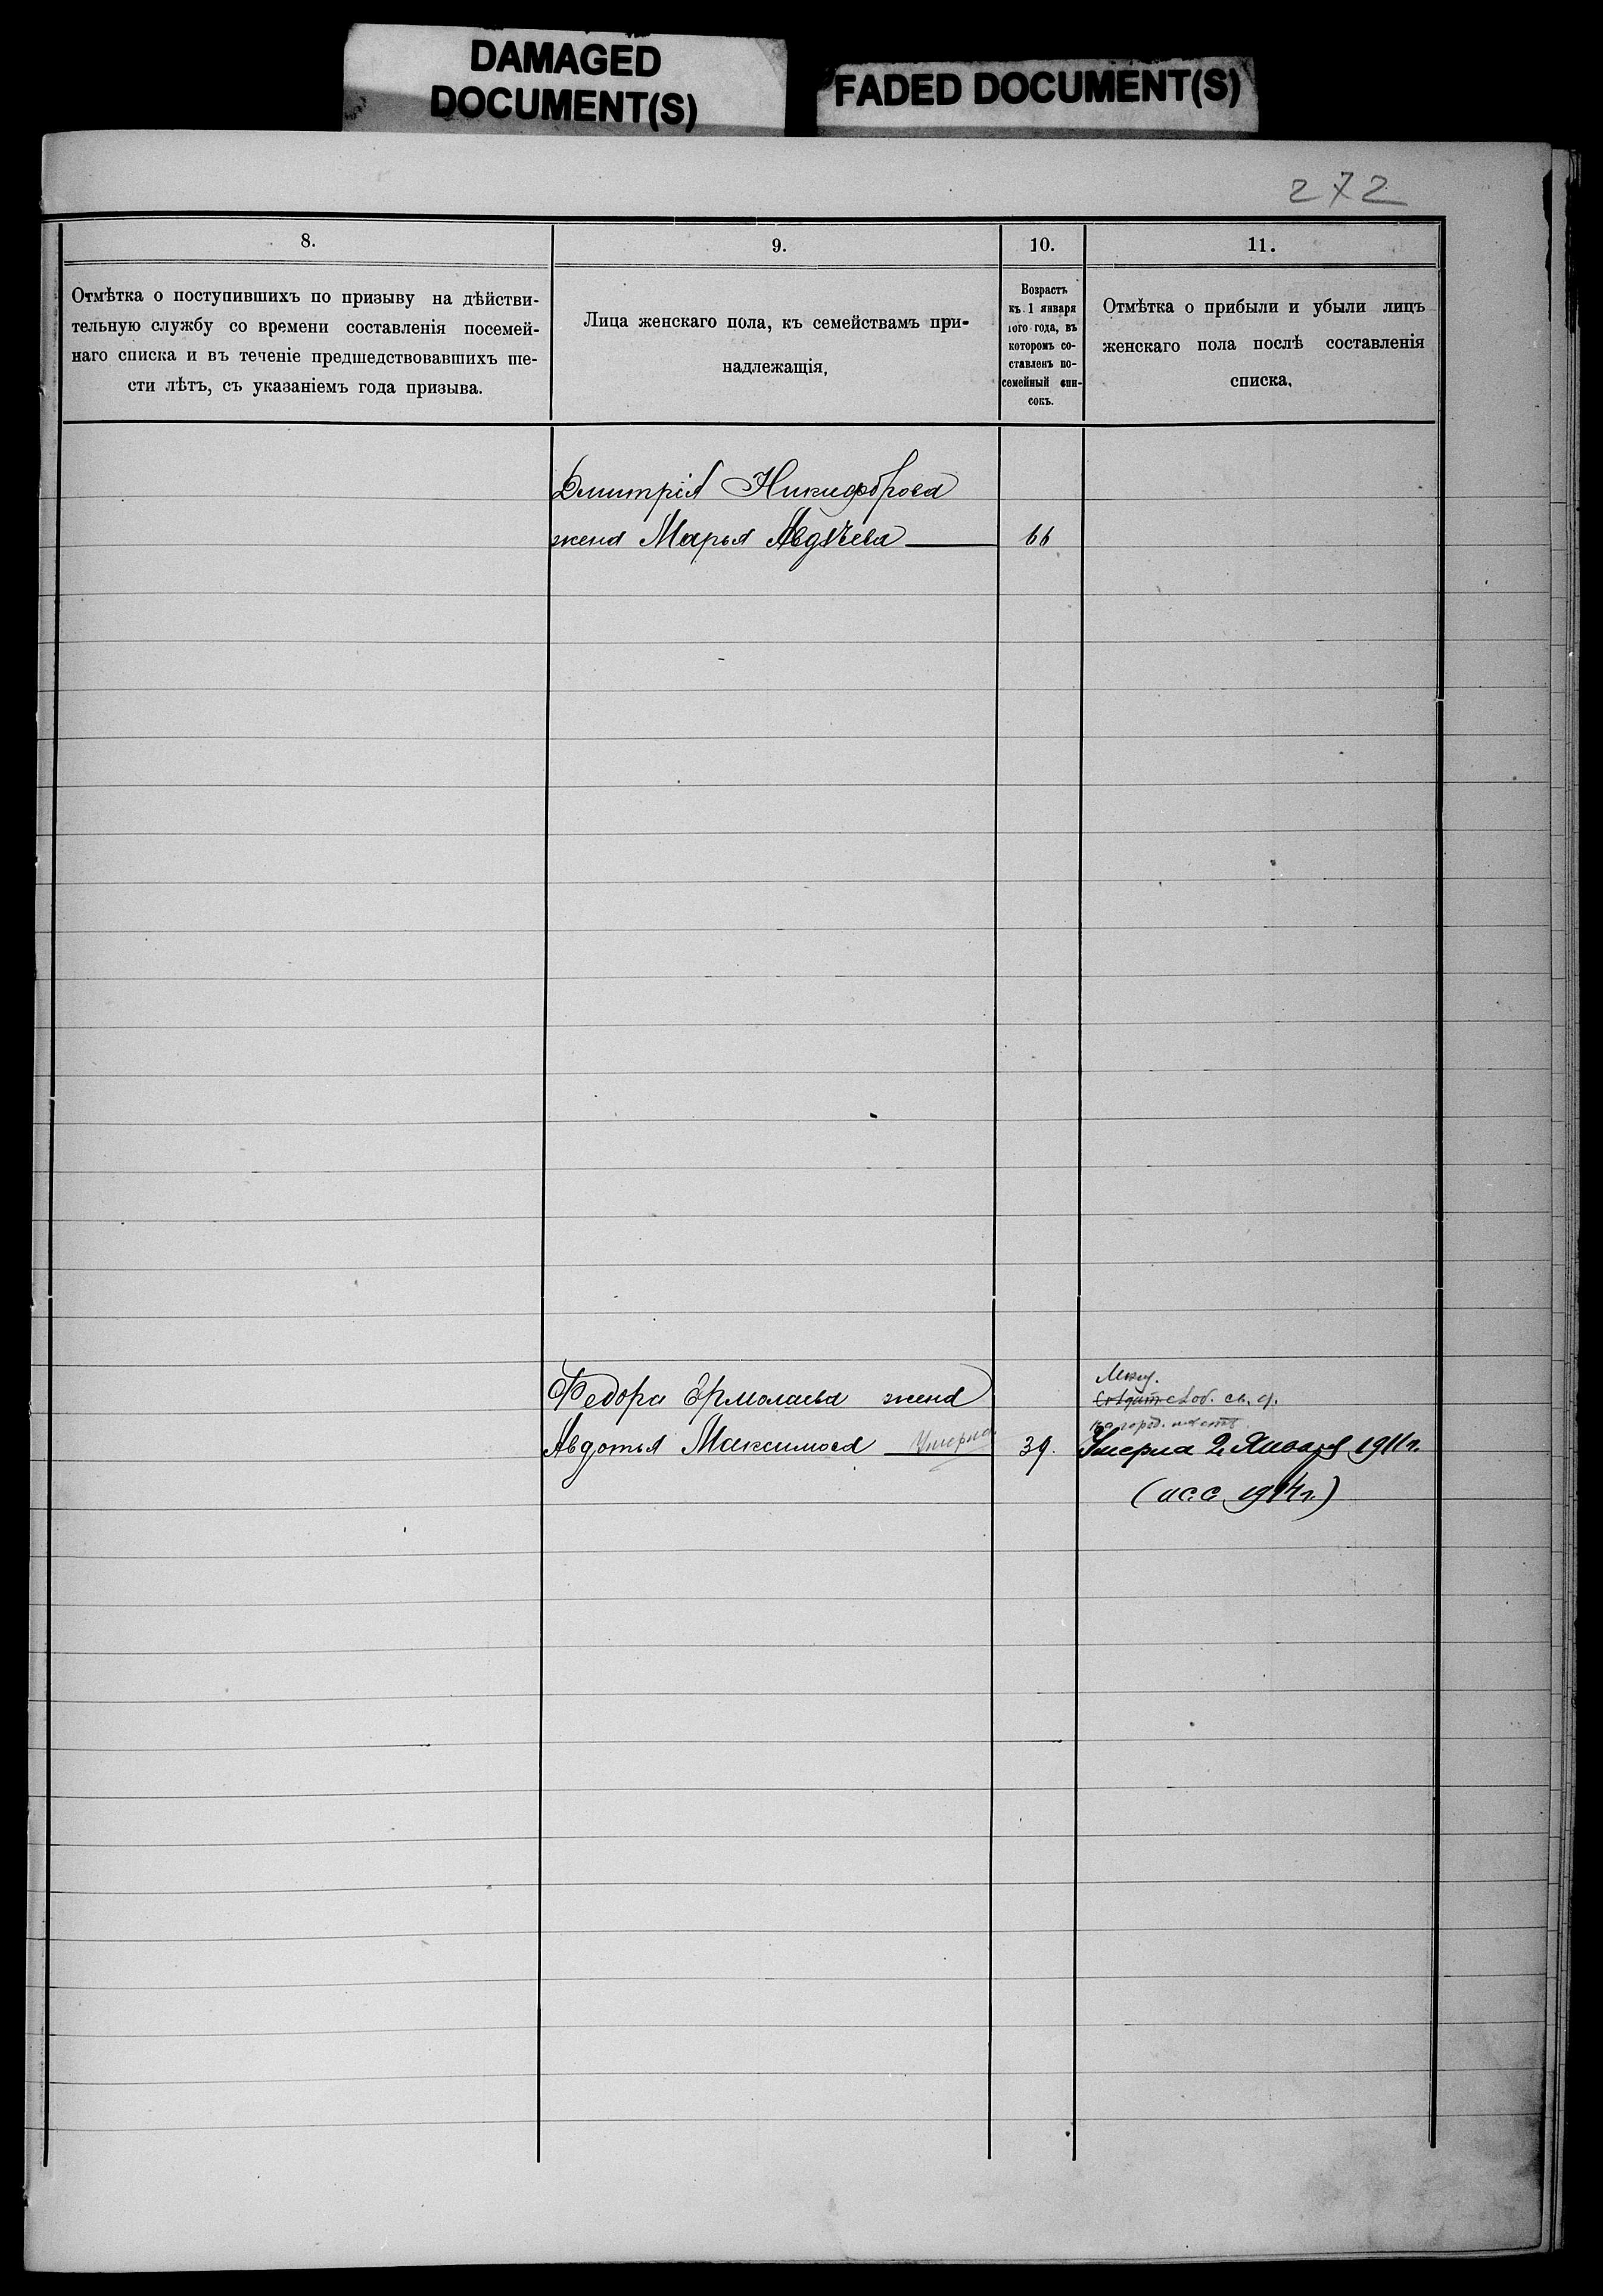 DAMAGED
DOCUMENT(S)
FADED DOCUMENT(S)
272
8.
Отмѣтка о поступившихъ по призыву на дѣйстви-
тельную службу со времени составленія посемей-
наго списка и въ теченіе предшедствовавшихъ ше-
сти лѣтъ, съ указаніемъ года призыва.
9.
Лица женскаго пола, къ семействамъ при-
надлежащія,
10.
Возрастъ
къ 1 января
того года, въ
которомъ со-
ставленъ по-
семейный спи-
сокъ.
11.
Отмѣтка о прибыли и убыли лицъ
женскаго пола послѣ составленія
списка,
Дмитрія Никифорова
жена Марья Авдѣева 66
Федора Ермолаева жена
Авдотья Максимова Умерла 39.
Умерла 2 Января 1911 г.
(исс 1914 г.)